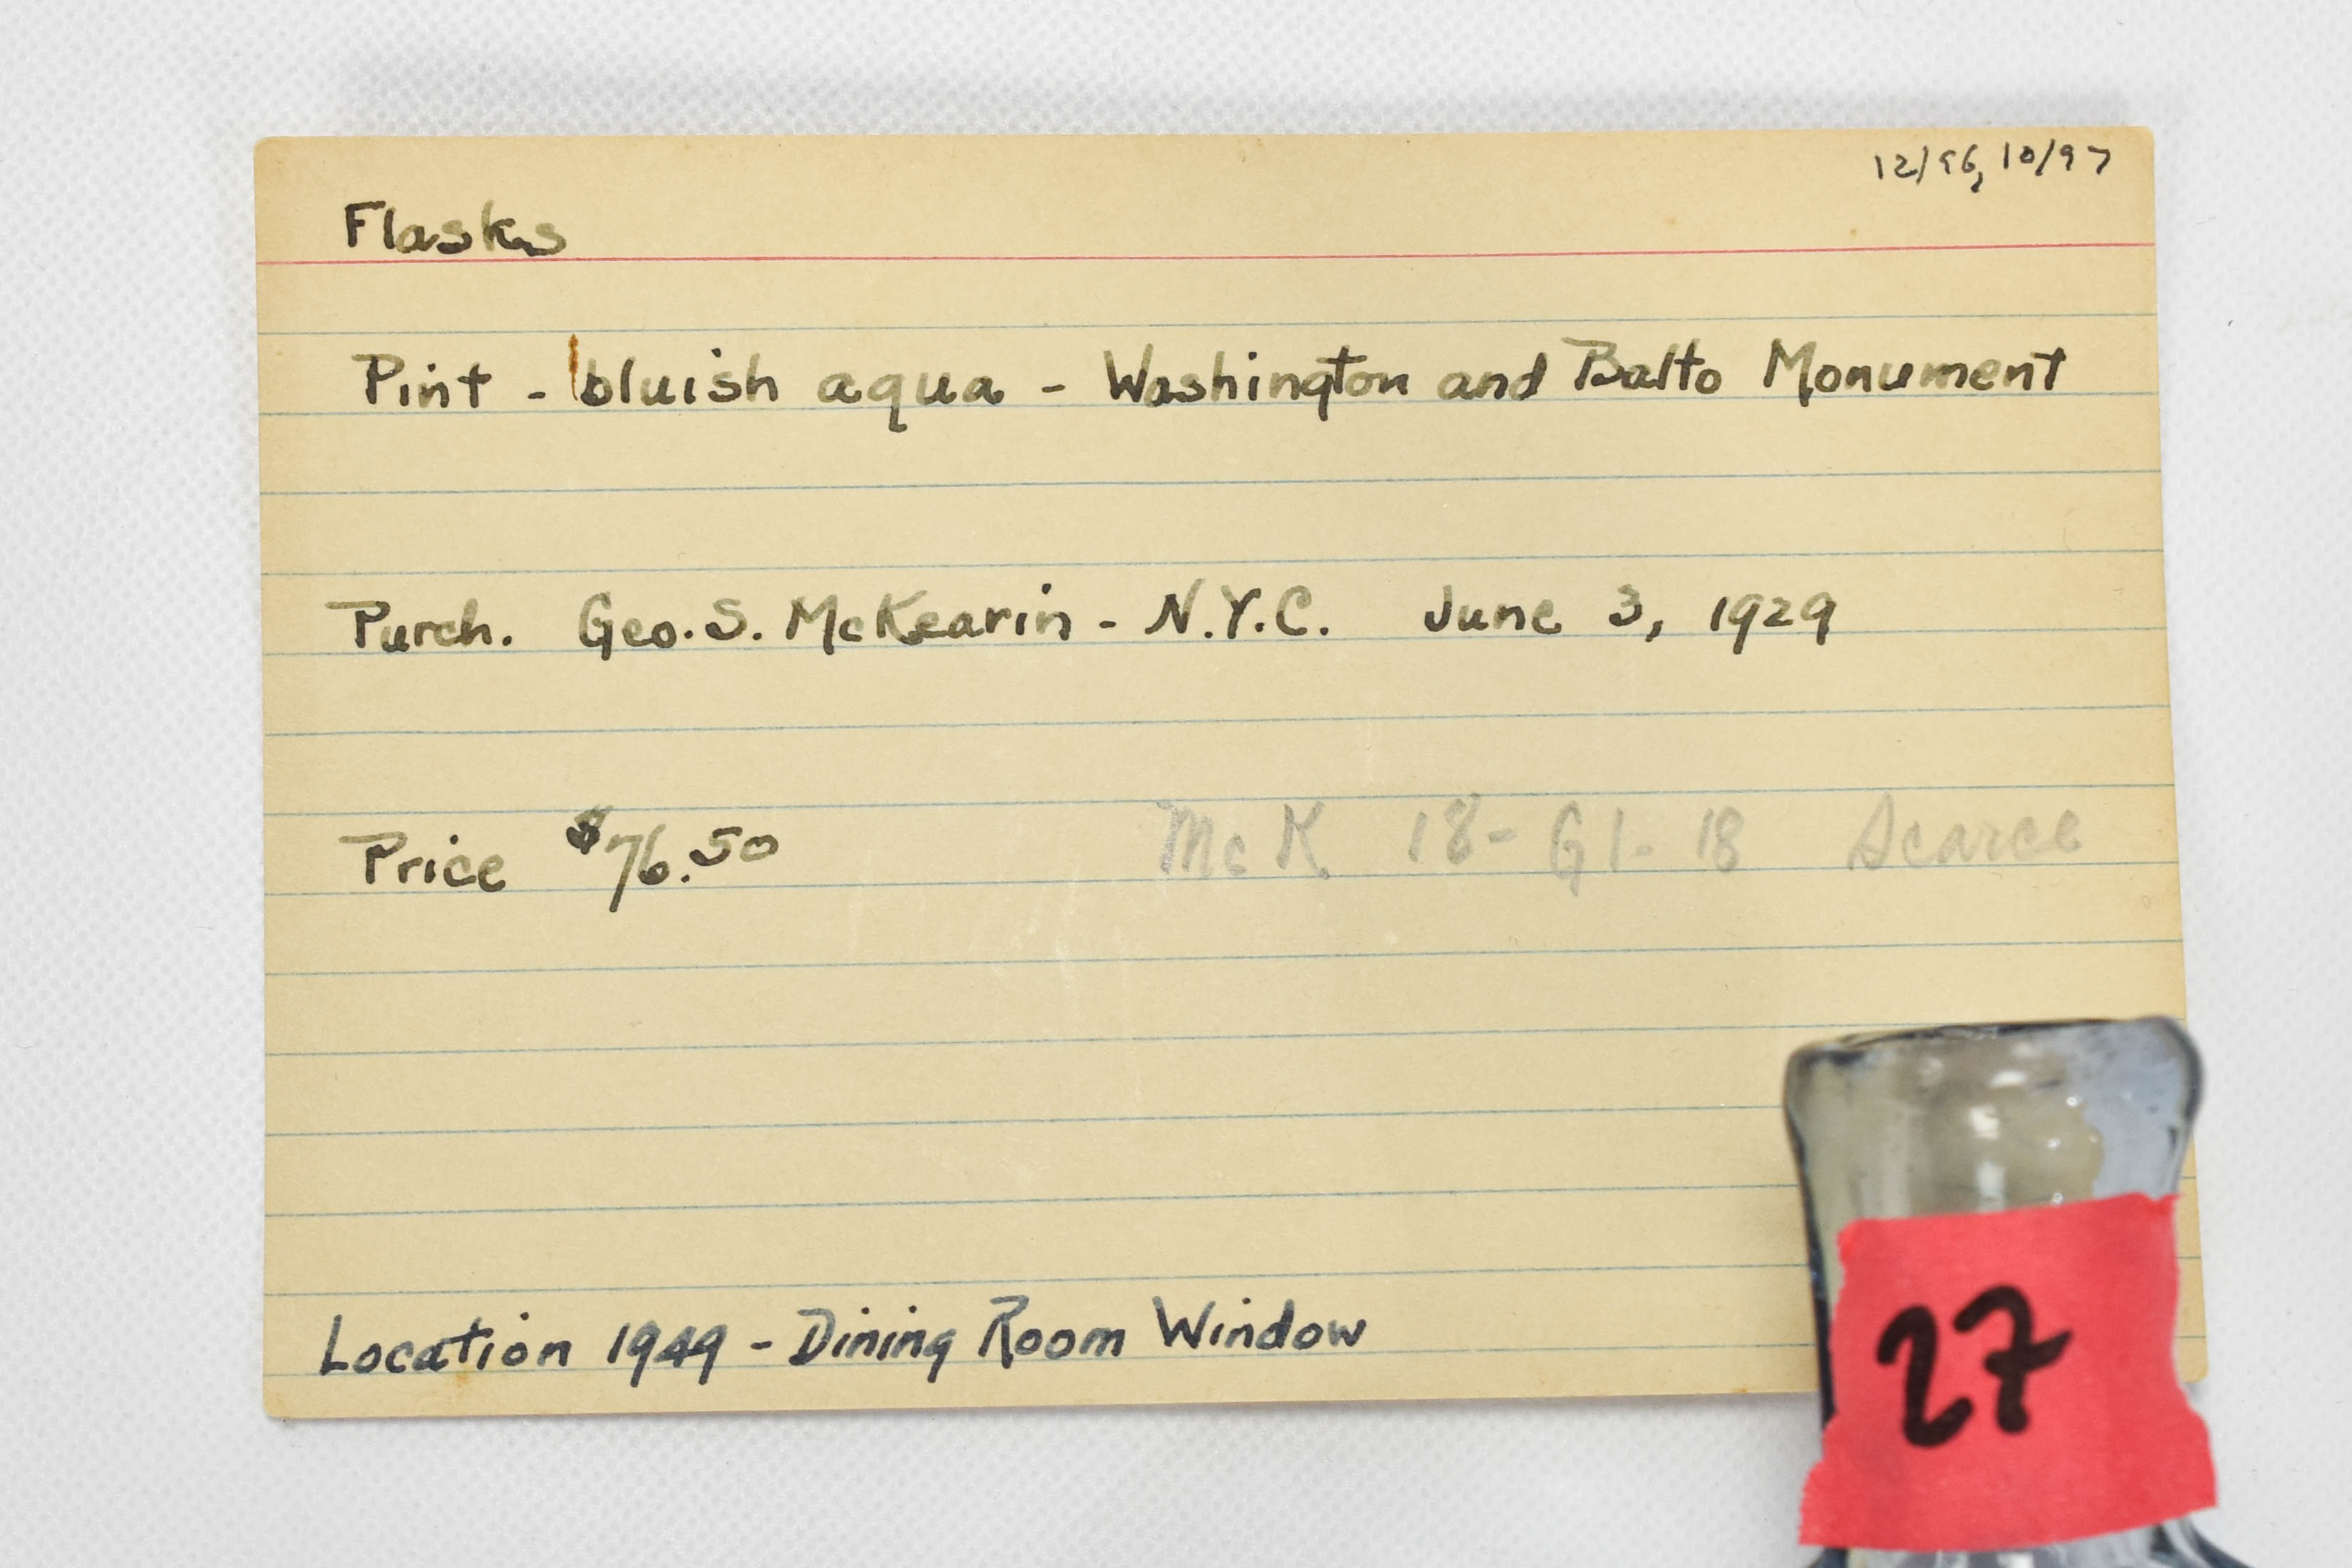 12/96, 10/97
Flasks
Pint - bluish aqua - Washington and Balto Monument
Purch. Geo. S. McKearin - N.Y.C. June 3, 1929
Price $76.50 McK 18 - G1 - 18 Scarce
Location 1949 - Dining Room Window
27